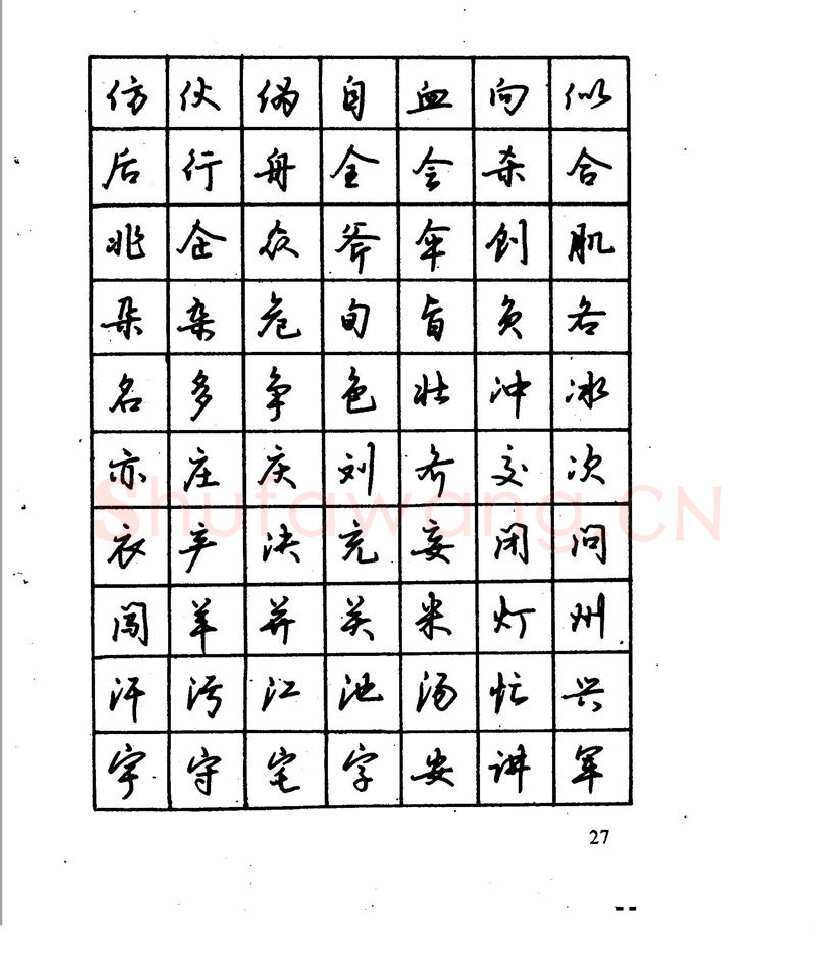 仿伙伪自血向似
后行舟全会杀合
兆企众爷伞创肌
朵杂危旬旨负各
名多争色壮冲冰
亦庄庆刘齐交次
衣产决充妄闭问
闯羊并关米灯州
汗污江池汤忙兴
宇守宅字安讲军
27
Shufawang.CN